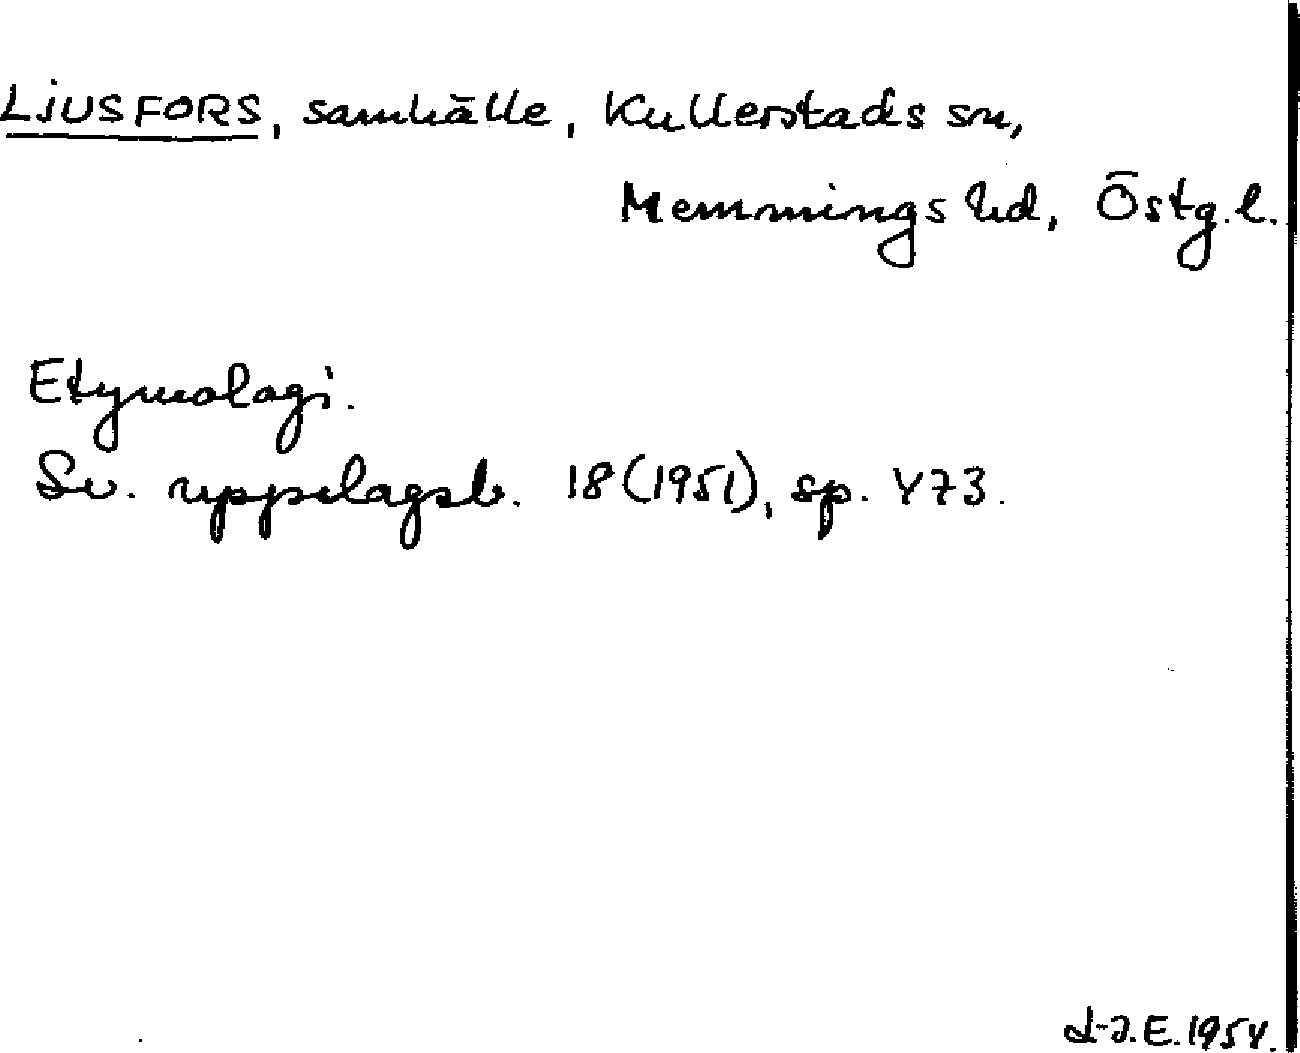 LJUSFORS, samhälle, Kullerstads sn,
Memmings hd, Östg. l.
Etymologi.
Sv. uppslagsb. 18 (1951), sp. 473.
L-J.E. 1954.